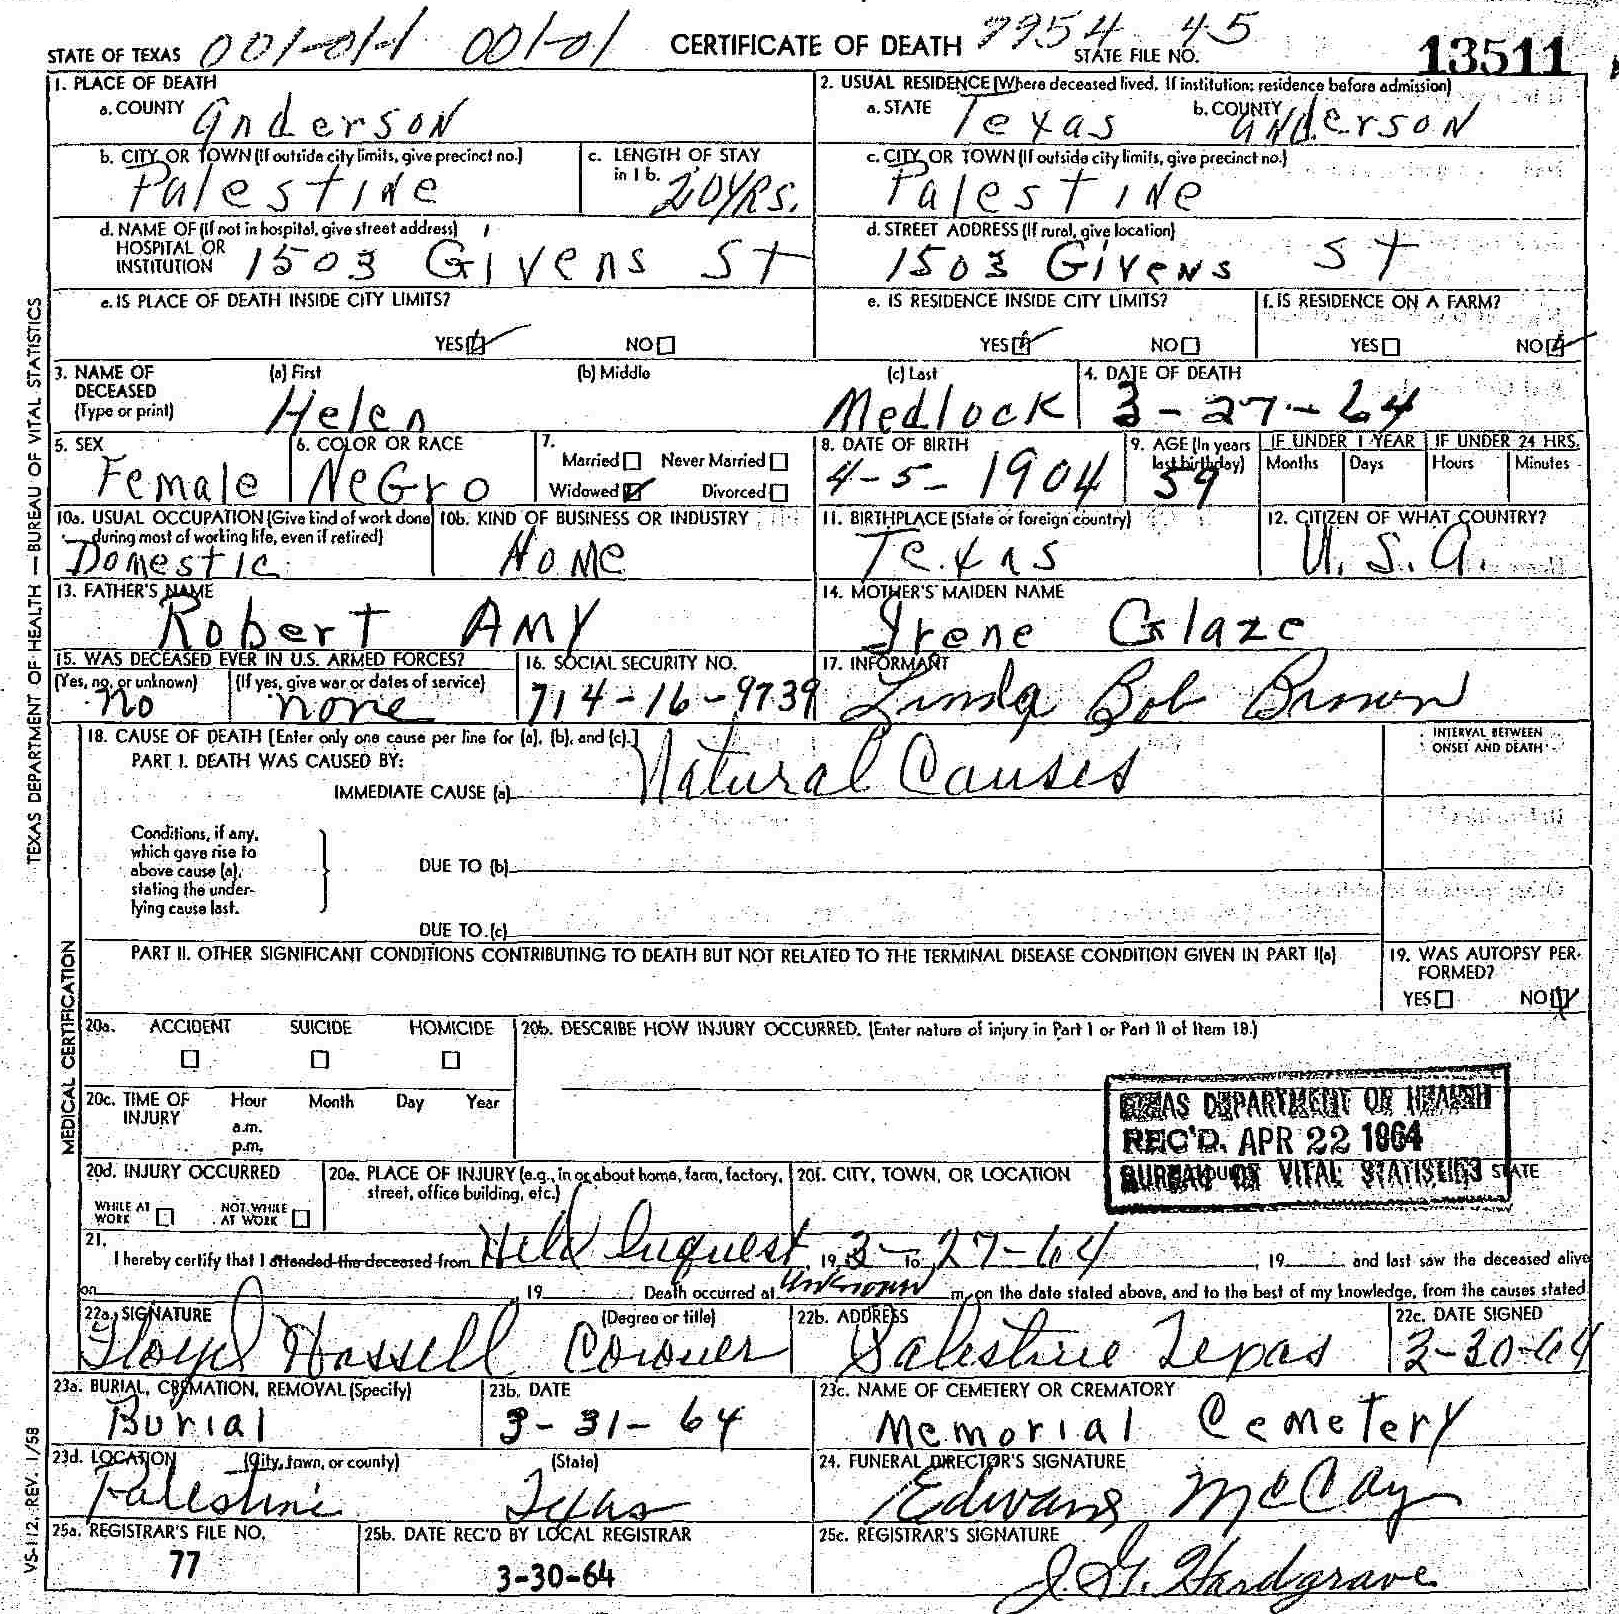 STATE OF TEXAS 001-01-1 001-01 CERTIFICATE OF DEATH 7954 45 STATE FILE NO. 13511
1. PLACE OF DEATH
a. COUNTY Anderson
2. USUAL RESIDENCE (Where deceased lived. If institution: residence before admission)
a. STATE Texas b. COUNTY Anderson
b. CITY OR TOWN (If outside city limits, give precinct no.) Palestine
c. LENGTH OF STAY in 1 b. 20 YRS.
c. CITY OR TOWN (If outside city limits, give precinct no.) Palestine
d. NAME OF (If not in hospital, give street address)
HOSPITAL OR
INSTITUTION 1503 Givens St
d. STREET ADDRESS (If rural, give location)
1503 Givens St
e. IS PLACE OF DEATH INSIDE CITY LIMITS?
YES NO
e. IS RESIDENCE INSIDE CITY LIMITS?
YES NO
f. IS RESIDENCE ON A FARM?
YES NO
3. NAME OF DECEASED (Type or print)
(a) First (b) Middle (c) Last
Helen Medlock
4. DATE OF DEATH
3-27-64
5. SEX
Female
6. COLOR OR RACE
Negro
7.
Married Never Married
Widowed Divorced
8. DATE OF BIRTH
4-5-1904
9. AGE (In years last birthday)
59
IF UNDER 1 YEAR IF UNDER 24 HRS.
Months Days Hours Minutes
10a. USUAL OCCUPATION (Give kind of work done during most of working life, even if retired)
Domestic
10b. KIND OF BUSINESS OR INDUSTRY
Home
11. BIRTHPLACE (State or foreign country)
Texas
12. CITIZEN OF WHAT COUNTRY?
U.S.A.
13. FATHER'S NAME
Robert Amy
14. MOTHER'S MAIDEN NAME
Irene Glaze
15. WAS DECEASED EVER IN U.S. ARMED FORCES?
(Yes, no, or unknown) (If yes, give war or dates of service)
no none
16. SOCIAL SECURITY NO.
714-16-9739
17. INFORMANT
Linda Bob Brown
18. CAUSE OF DEATH [Enter only one cause per line for (a), (b), and (c).]
PART I. DEATH WAS CAUSED BY:
IMMEDIATE CAUSE (a) Natural Causes
INTERVAL BETWEEN
ONSET AND DEATH
Conditions, if any,
which gave rise to
above cause (a),
stating the under-
lying cause last.
DUE TO (b)
DUE TO (c)
PART II. OTHER SIGNIFICANT CONDITIONS CONTRIBUTING TO DEATH BUT NOT RELATED TO THE TERMINAL DISEASE CONDITION GIVEN IN PART I(a)
19. WAS AUTOPSY PER-
FORMED?
YES NO
20a. ACCIDENT SUICIDE HOMICIDE
20b. DESCRIBE HOW INJURY OCCURRED. (Enter nature of injury in Part I or Part II of Item 18.)
20c. TIME OF INJURY
Hour Month Day Year
a.m.
p.m.
TEXAS DEPARTMENT OF HEALTH
REC'D. APR 22 1964
BUREAU OF VITAL STATISTICS
20d. INJURY OCCURRED
WHILE AT WORK NOT WHILE AT WORK
20e. PLACE OF INJURY (e.g., in or about home, farm, factory, street, office building, etc.)
20f. CITY, TOWN, OR LOCATION COUNTY STATE
21.
I hereby certify that I attended the deceased from Held Inquest, 19 3-27-64 to, 19 and last saw the deceased alive
on, 19 . Death occurred at Unknown m, on the date stated above, and to the best of my knowledge, from the causes stated
22a. SIGNATURE (Degree or title)
Floyd Hassell Coroner
22b. ADDRESS
Palestine Texas
22c. DATE SIGNED
3-30-64
23a. BURIAL, CREMATION, REMOVAL (Specify)
Burial
23b. DATE
3-31-64
23c. NAME OF CEMETERY OR CREMATORY
Memorial Cemetery
23d. LOCATION (City, town, or county) (State)
Palestine Texas
24. FUNERAL DIRECTOR'S SIGNATURE
Edward McCoy
25a. REGISTRAR'S FILE NO.
77
25b. DATE REC'D BY LOCAL REGISTRAR
3-30-64
25c. REGISTRAR'S SIGNATURE
J. G. Hardgrave
TEXAS DEPARTMENT OF HEALTH — BUREAU OF VITAL STATISTICS
MEDICAL CERTIFICATION
VS-112. REV. 1/58